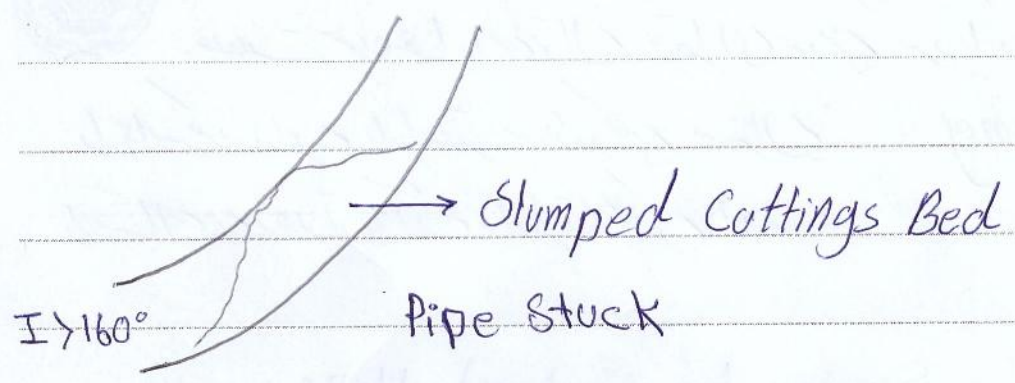 → Slumped Cuttings Bed
I>160°
Pipe Stuck